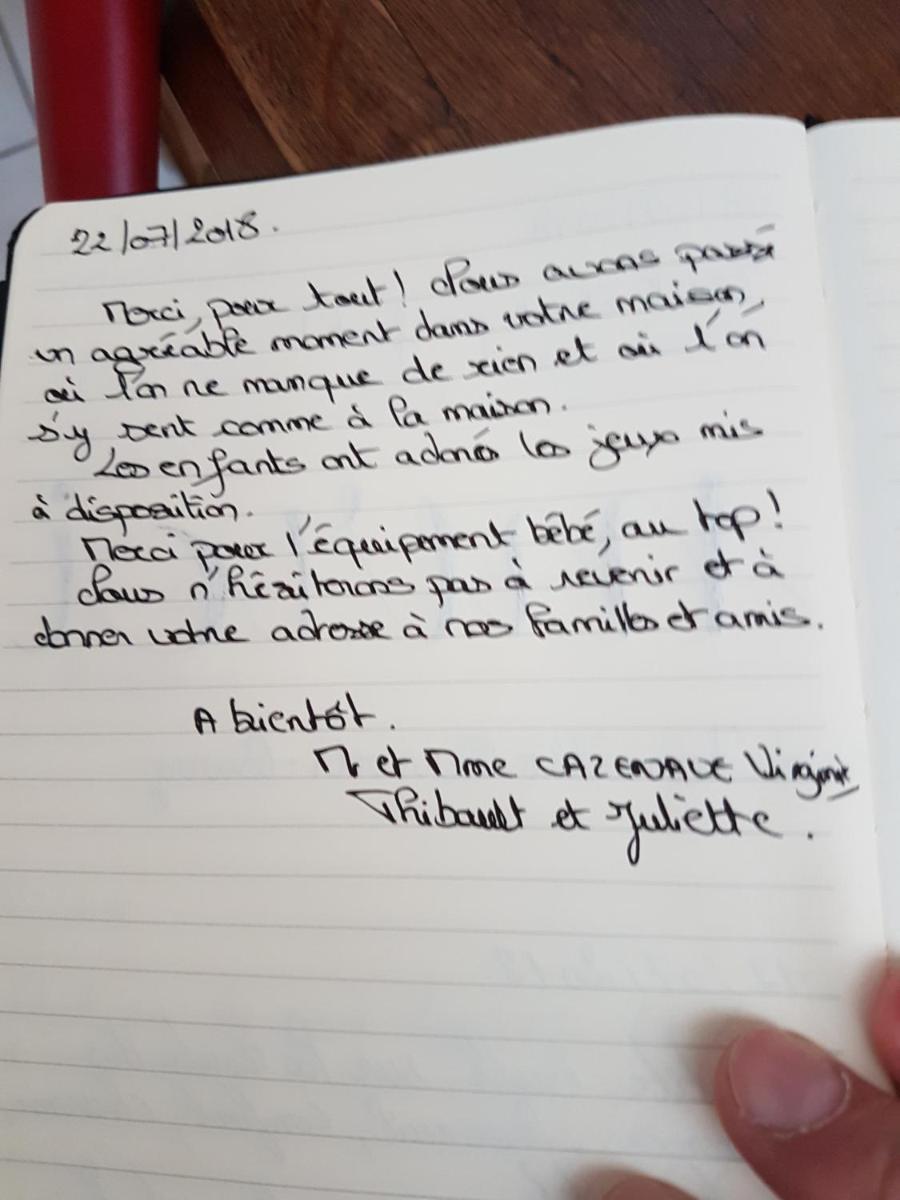 22/07/2018.
Merci, pour tout ! Nous avons passé
un agréable moment dans votre maison,
où l'on ne manque de rien et où l'on
s'y sent comme à la maison.
Les enfants ont adoré les jeux mis
à disposition.
Merci pour l'équipement bébé, au top !
Nous n'hésiterons pas à revenir et à
donner votre adresse à nos familles et amis.
A bientôt.
Mr et Mme CAZENAVE Virginie
Thibault et Juliette.